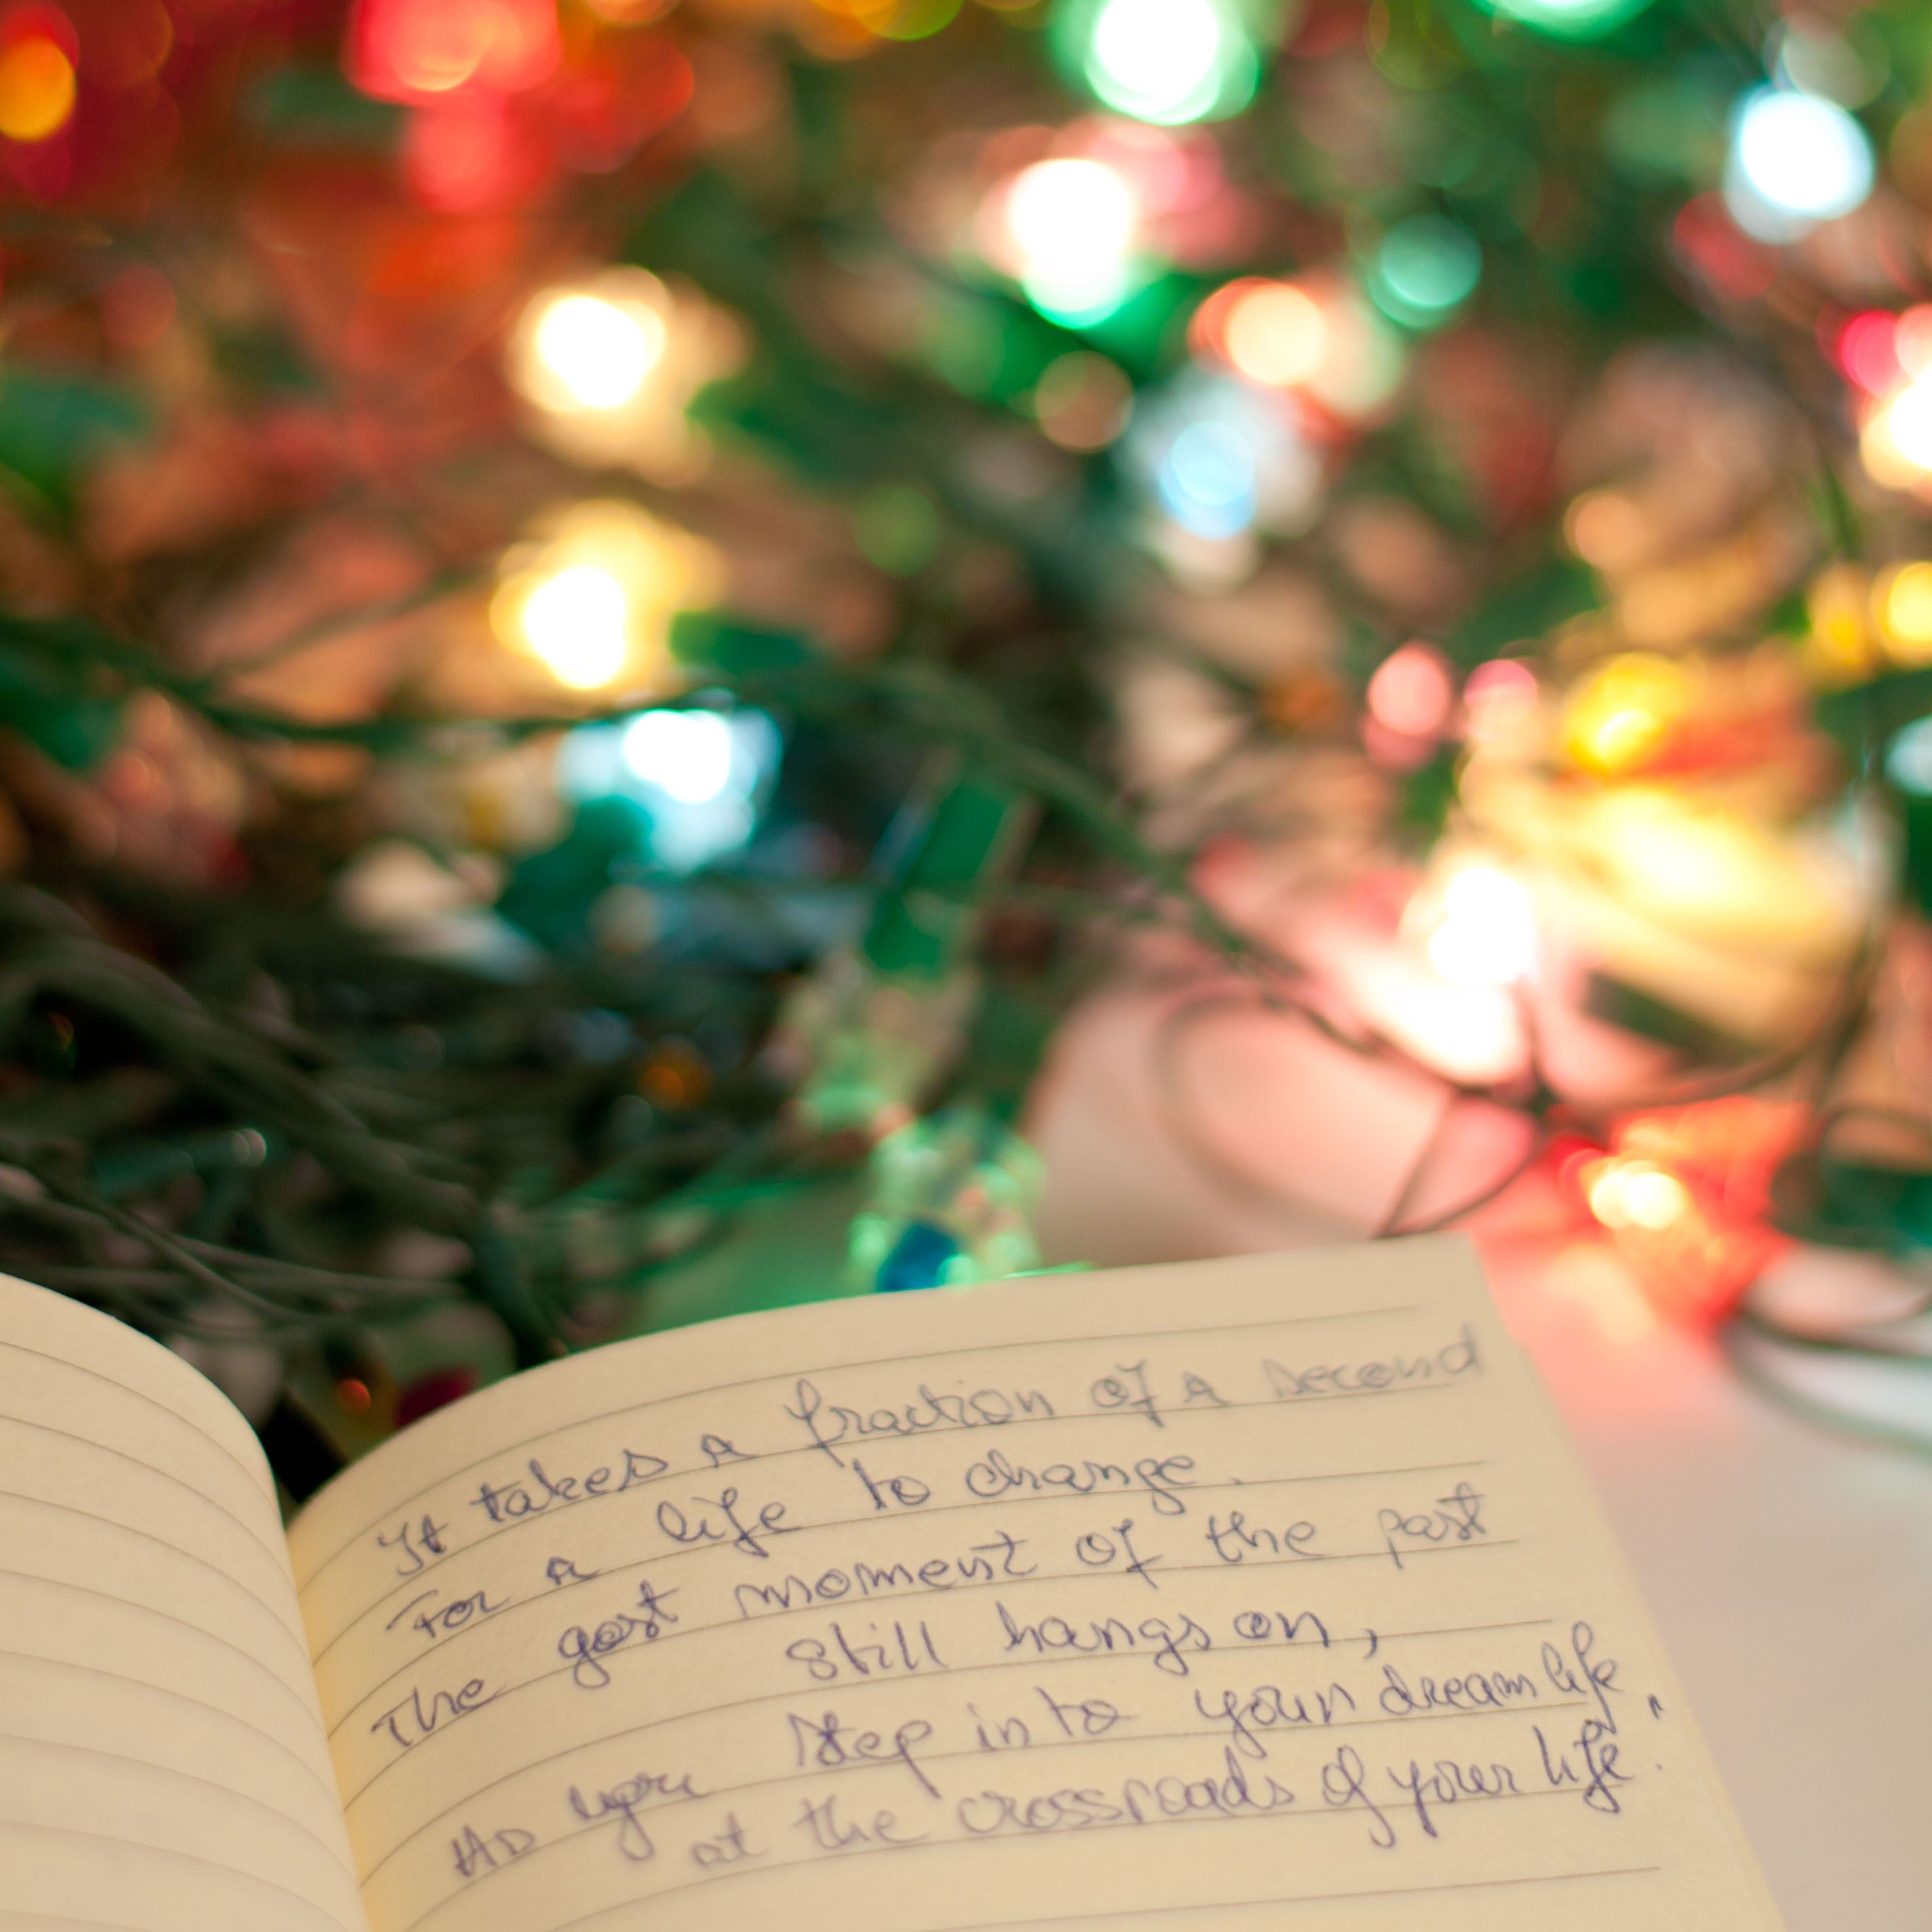 It takes a fraction of a second
For a life to change.
The gost moment of the past
still hangs on,
As you step into your dream life,
at the crossroads of your life.